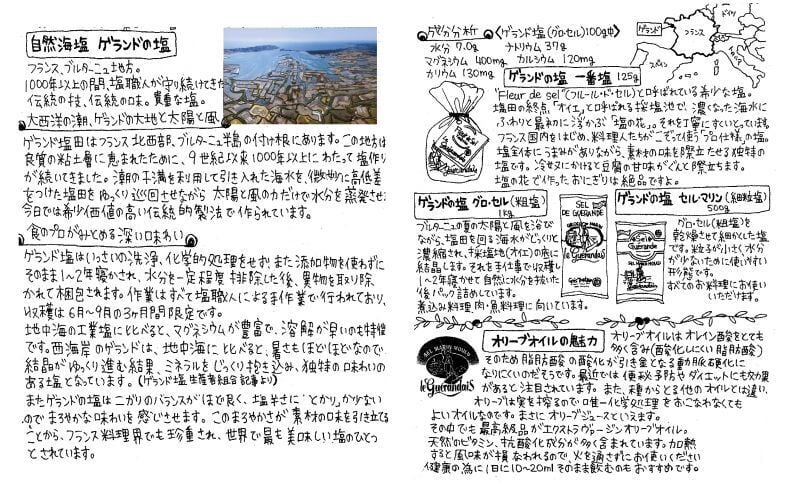 自然海塩 ゲランドの塩
フランス、ブルターニュ地方。
1000年以上の間、塩職人が守り続けてきた
伝統の技、伝統の味。貴重な塩。
大西洋の潮、ゲランドの大地と太陽と風
ゲランド塩田はフランス北西部、ブルターニュ半島の付け根にあります。この地方は
良質の粘土層に恵まれたために、9世紀以来1000年以上にわたって塩作り
が続いてきました。潮の干満を利用して引き入れた海水を、微妙に高低差
をつけた塩田をゆっくり巡回させながら 太陽と風の力だけで水分を蒸発させ
今日では希少価値の高い伝統的製法で作られています。
食のプロがみとめる深い味わい
ゲランド塩はいっさいの洗浄、化学的処理をせず!また添加物を使わずに
そのまま1~2年寝かされ、水分を一定程度排除した後、異物を取り除
かれて梱包されます。作業はすべて塩職人による手作業で行われており、
収穫は6月~9月の3ヶ月間限定です。
地中海の工業塩に比べると、マグネシウムが豊富で、溶解が早いのも特徴
です。西海岸のゲランドは、地中海に比べると、暑さもほどほどなので
結晶がゆっくり進む結果、ミネラルをじっくり抱き込み、独特の味わいの
ある塩となっています。(ゲランド塩生産者組合記事より)
またゲランドの塩は ニガリのバランスがほど良く、塩辛さに"とがり"が少ない
のでまろやかな味わいを感じさせます。このまろやかさが素材の味を引き立てる
ことから、フランス料理界でも珍重され、世界で最も美味しい塩のひとつ
とされています。
成分分析 〈ゲランド塩(グロ・セル)100g中〉
水分 7.0g ナトリウム 37g
マグネシウム 400mg カルシウム 120mg
カリウム 130mg
ゲランド
フランス
ドイツ
スペイン
ゲランドの塩 一番塩 125g
"Fleur de sel"(フルール・ド・セル)と呼ばれている希少な塩。
塩田の終点、「オイエ」と呼ばれる採塩池で、濃くなった海水に
ふわりと最初に浮かぶ「塩の花」。それを丁寧にすくいとっています。
フランス国内をはじめ、料理人たちがこぞって使う"プロ仕様"の塩。
塩全体にうまみがありながら、素材の味を際立たせる独特の
塩です。冷ヤッコにかけると豆腐の甘味がぐんと際立ちます。
塩の花で作ったおにぎりは絶品ですよ。
ゲランドの塩 グロ・セル(粗塩)
1kg
ブルターニュの夏の太陽と風を浴び
ながら、塩田を回る海水がじっくりと
濃縮され、採塩池(オイエ)の底に
結晶します。それを手仕事で収穫し
1~2年寝かせて自然に水分を抜いた
後パック詰めしています。
煮込み料理、肉・魚料理に向いています。
SEL
DE GUERANDE
le Guérandais
ゲランドの塩 セル・マリン(細粒塩)
500g
グロ・セル(粗塩)を
乾燥させて細かくした塩
です。粒子が小さく水分
が少ないために使いやすい
形態です。
すべてのお料理にお使い
いただけます。
le Guérandais
オリーブオイルの魅力
オリーブオイルは オレイン酸をとても
多く含み(酸化しにくい脂肪酸)
そのため脂肪酸の酸化が引き金となる動脈硬化に
なりにくいのだそうです。最近では便秘予防やダイエットにも効果
があると注目されています。また、種からとる他のオイルとは違い、
オリーブは実を搾るので唯一化学処理をおこなわなくても
よいオイルなのです。まさにオリーブジュースといえます。
その中でも最高級品がエクストラヴァージンオリーブオイル。
天然のビタミン、抗酸化成分が多く含まれています。加熱
すると風味が損なわれるので、火を通さずにお使いください
健康の為に1日に10~20mlそのまま飲むのもおすすめです。